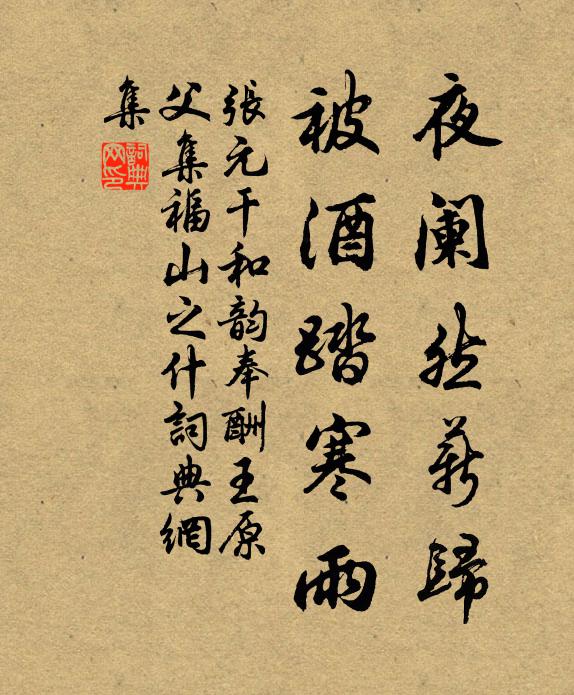 夜阑然薪歸
被酒踏寒雨
張元干和韵奉酬王原
父集福山之什詞典網
集
詞典網印